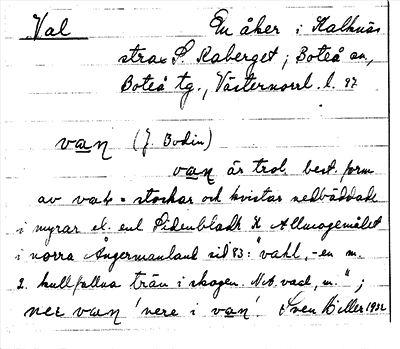 Val En åker i Kalknäs
strax S. Kaberget; Boteå sn,
Boteå tg., Västernorrl. l. 97
van (J. Bodin)
van är trol. best. form
av val = stockar och kvistar nedbäddade
i myrar el. enl Sidenbladh H Allmogemålet
i norra Ångermanland sid 83: "vahl, -en m.
2. kullfallna trän i skogen. M.A. vad, m.";
ner van 'nere i van'. Sven Hiller 1932